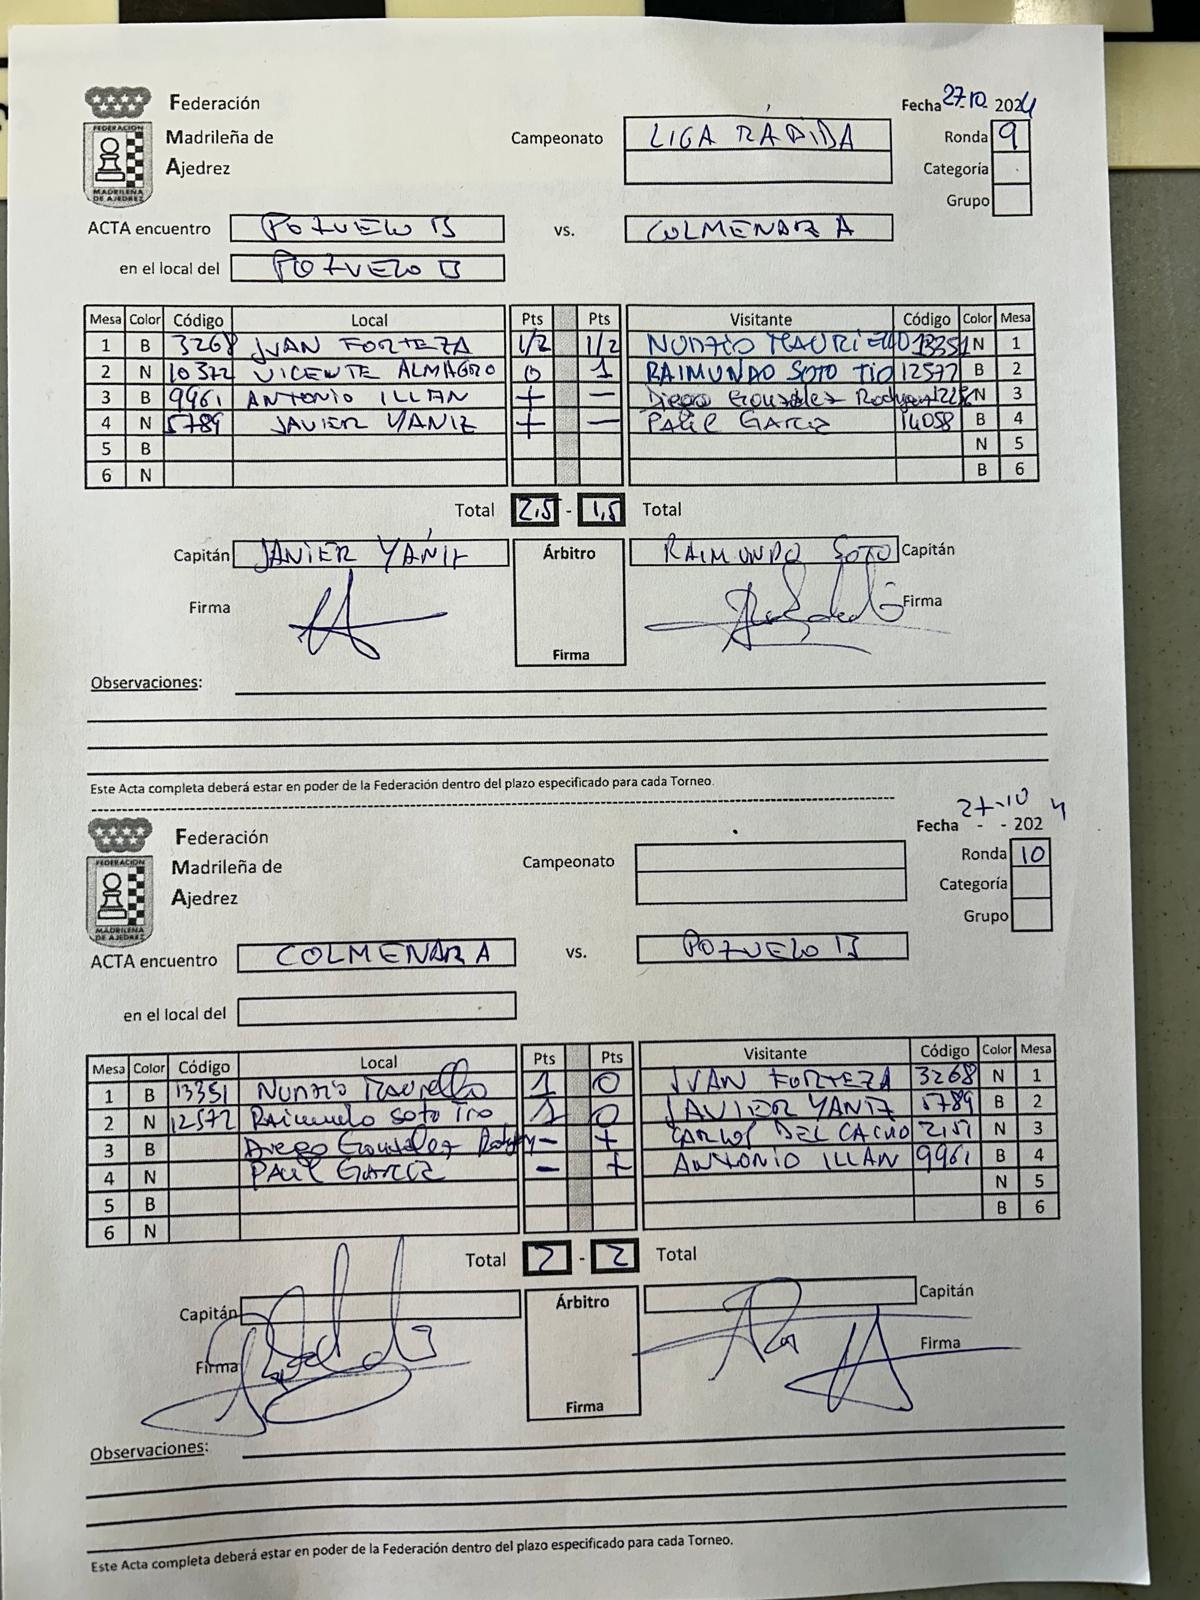 Federación
Madrileña de
Ajedrez
FEDERACION
MADRILEÑA
DE AJEDREZ
Fecha 27.10 2024
Campeonato LIGA RÁPIDA
Ronda 9
Categoría
Grupo
ACTA encuentro POZUELO B vs. COLMENAR A
en el local del POZUELO B
Mesa Color Código Local Pts Pts Visitante Código Color Mesa
1 B 3268 JUAN FORTEZA 1/2 1/2 NUNZIO MAURIELLO 13351 N 1
2 N 10372 VICENTE ALMAGRO 0 1 RAIMUNDO SOTO TIO 12577 B 2
3 B 9961 ANTONIO ILLAN + — Diego González N 3
4 N 5789 JAVIER YANIZ + — PAUL GARCIA 14058 B 4
5 B N 5
6 N B 6
Total 2,5 - 1,5 Total
Capitán JAVIER YAÑIZ Árbitro RAIMUNDO SOTO Capitán
Firma Firma
Firma
Observaciones:
Este Acta completa deberá estar en poder de la Federación dentro del plazo especificado para cada Torneo.
Federación
Madrileña de
Ajedrez
FEDERACION
MADRILEÑA
DE AJEDREZ
27-10
Fecha - - 2024
Campeonato
Ronda 10
Categoría
Grupo
ACTA encuentro COLMENAR A vs. POZUELO B
en el local del
Mesa Color Código Local Pts Pts Visitante Código Color Mesa
1 B 13351 Nunzio 1 0 JUAN FORTEZA 3268 N 1
2 N 12572 Raimundo Soto Tio 1 0 JAVIER YANIZ 5789 B 2
3 B Diego González — + CARLOS DEL CACHO N 3
4 N PAUL GARCIA — + ANTONIO ILLAN 9961 B 4
5 B N 5
6 N B 6
Total 2 - 2 Total
Capitán Árbitro Capitán
Firma Firma
Firma
Observaciones:
Este Acta completa deberá estar en poder de la Federación dentro del plazo especificado para cada Torneo.